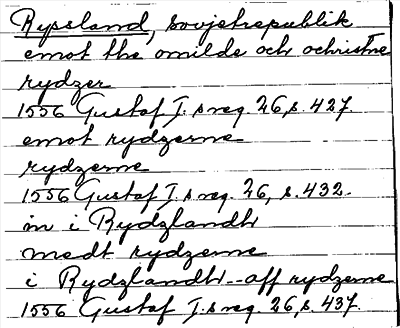 Ryssland, Sovjetrepublik
emot the omilde och ochristne
rydzer
1556 Gustaf I:s reg. 26, s. 427.
emot rydzerne
rydzerne
1556 Gustaf I.s reg. 26, s. 432.
in i Rydzlandh
medt rydzerne
i Rydzlandh--aff rydzerne
1556 Gustaf I:s reg. 26, s. 437.